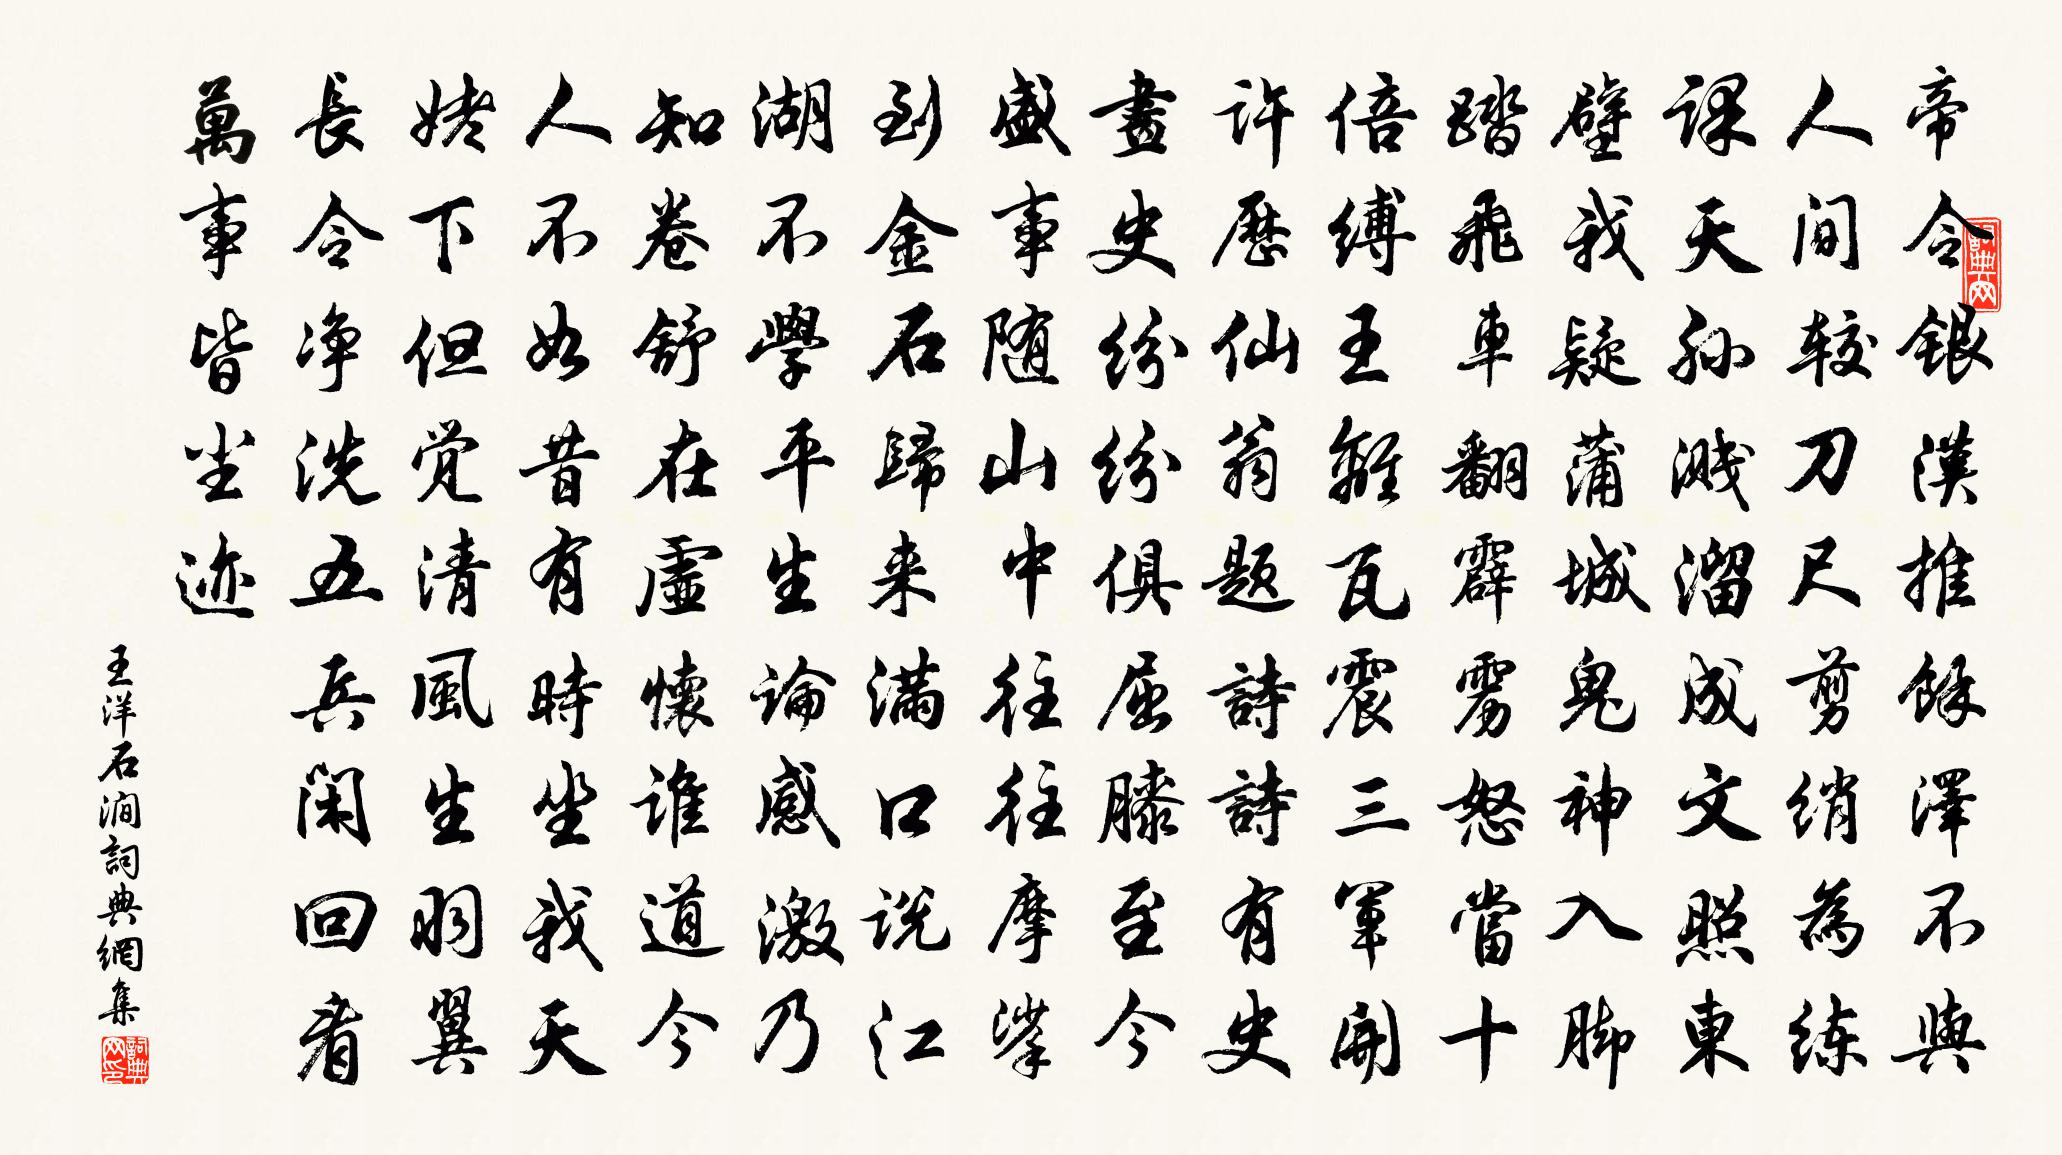 帝令銀漢推餘澤不與
人間較刀尺剪綃為練
課天孫溅溜成文照東
壁我疑蒲城鬼神入脚
踏飛車翻霹雳怒當十
倍縛王離瓦震三軍開
許歷仙翁题詩詩有史
畫史紛紛俱屈膝至今
盛事随山中往往摩挲
到金石歸来满口説江
湖不學平生論感激乃
知卷舒在虚懷誰道今
人不如昔有時坐我天
姥下但觉清風生羽翼
長令净洗五兵閑回看
萬事皆尘迹
王洋石澗詞典網集
詞典网
詞典网印